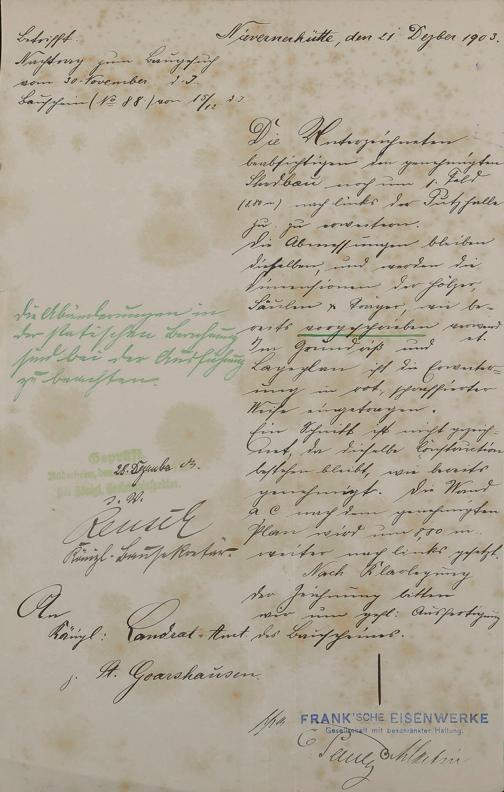 Nievernerhütte, den 21 Dezber 1903.
Betrifft:
Nachtrag zum Baugesuch
vom 30. November d. J.
Bauschein (No 88.) von 15/12 03
Die Unterzeichneten
beabsichtigen den genehmigten
Shedbau noch um 1. Feld
nach links der Putzhalle
zu erweitern.
Die Abmessungen bleiben
dieselben, und werden die
Dimensionen der Hölzer,
Säulen & Träger, wie be-
reits vorgeschrieben
Im Grundriß und
Lageplan ist die Erweiter-
ung in rot, schraffierter
Weise eingetragen.
Ein Schnitt ist nicht gezeich-
net, da dieselbe Construction
bestehen bleibt, wie bereits
genehmigt. Die Wand
a c nach dem genehmigten
Plan wird um 5,80 m
weiter nach links gesetzt.
Nach Klarlegung
der Zeichnung bitten
wir um gefl: Ausfertigung
des Bauscheines.
die Abänderungen in
der statischen Berechnung
sind bei der Ausführung
zu beachten.
Geprüft
Rüdesheim, den 28. Dezember 03.
I. V.
Reusch
Königl. Bausekretär.
An
Königl: Landrat-Amt
z. St. Goarshausen.
FRANK'SCHE EISENWERKE
Gesellschaft mit beschränkter Haftung.